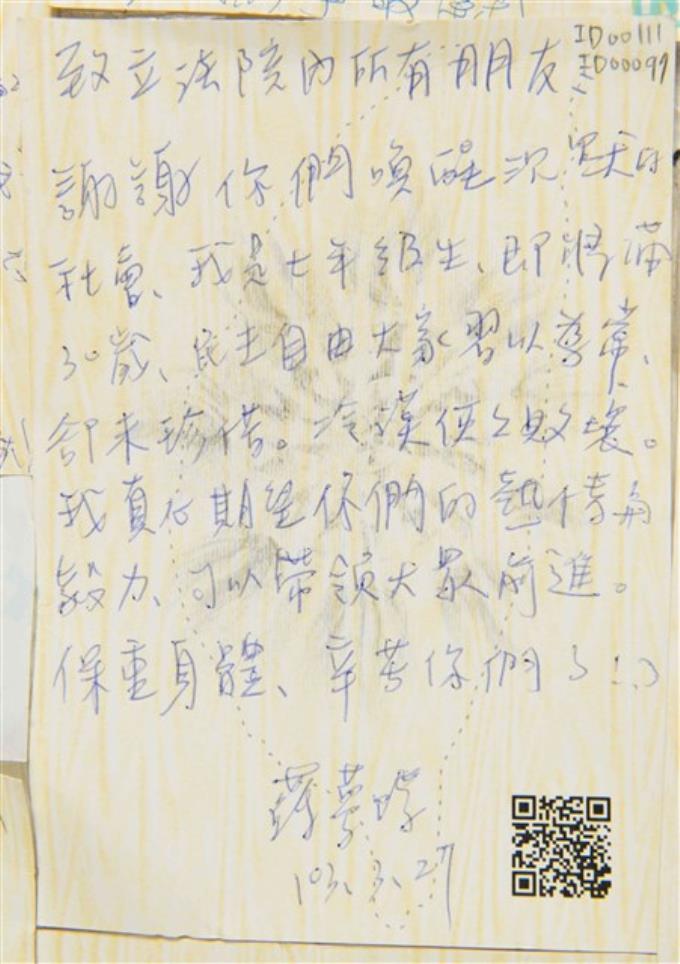 ID00111
ID00097
致立法院內所有朋友：
謝謝你們喚醒沉默的
社會、我是七年級生、即將滿
30歲、民主自由大家習以為常、
卻未珍惜。冷漠使之敗壞。
我真心期望你們的熱情與
毅力、可以帶領大眾前進。
保重身體、辛苦你們了!!
103.3.27